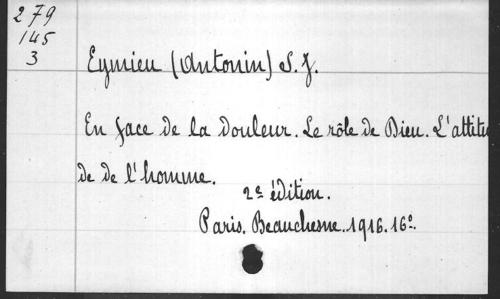 279
145
3
Eymieu (Antonin) S. J.
En face de la douleur. Le rôle de Dieu. L'attitu
de de l'homme.
2e édition.
Paris. Beauchesne. 1916. 16°.